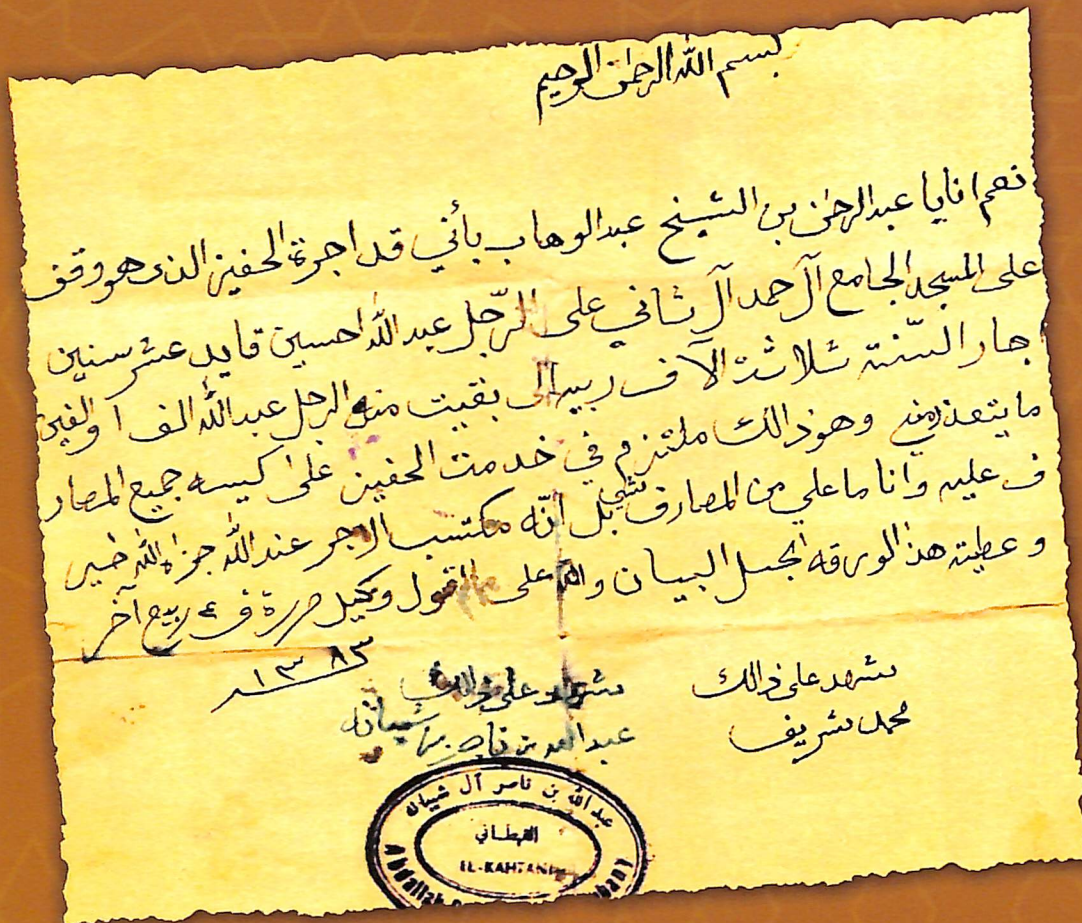 بسم الله الرحمن الرحيم
نعم انايا عبدالرحمن بن الشيخ عبدالوهاب بأني قد اجرة الحفيز الذي هو وقف
على المسجد الجامع آل حمد آل ثاني على الرّجل عبدالله احسين قايد عشر سنين
اجار السّنة ثلاثة آلاف ربيه الى بقيت منه الرجل عبدالله الف او الفين
ما يتعذرمني وهو ذالك ملتزم في خدمت الحفيز على كيسه جميع المصار
ف عليه وانا ما علي من المصارف شي بل انّه مكتسب الاجر عند الله جزاه الله خير
وعطيته هذ الورقه لجل البيان والله على القول وكيل حررة في ٤ ربيع آخر
١٣٨٣
نشهد على ذالك
محمد شريف
نشهد على ذالك
عبدالله بن ناصر بن شبانه
عبدالله بن ناصر آل شبانه
القحطاني
EL-KAHTANI
Abdallah